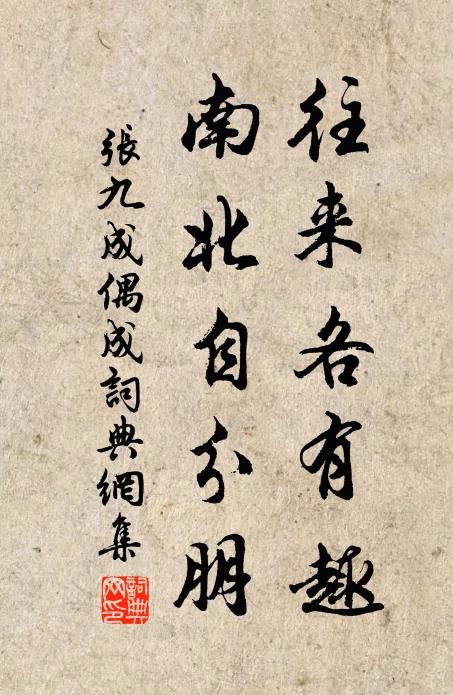 往来各有趣
南北自分朋
張九成偶成詞典網集
詞典网印